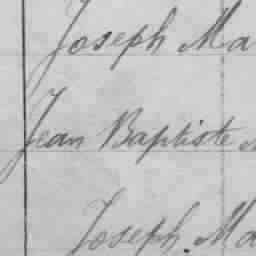 Joseph Ma
Jean Baptiste
Joseph. Ma